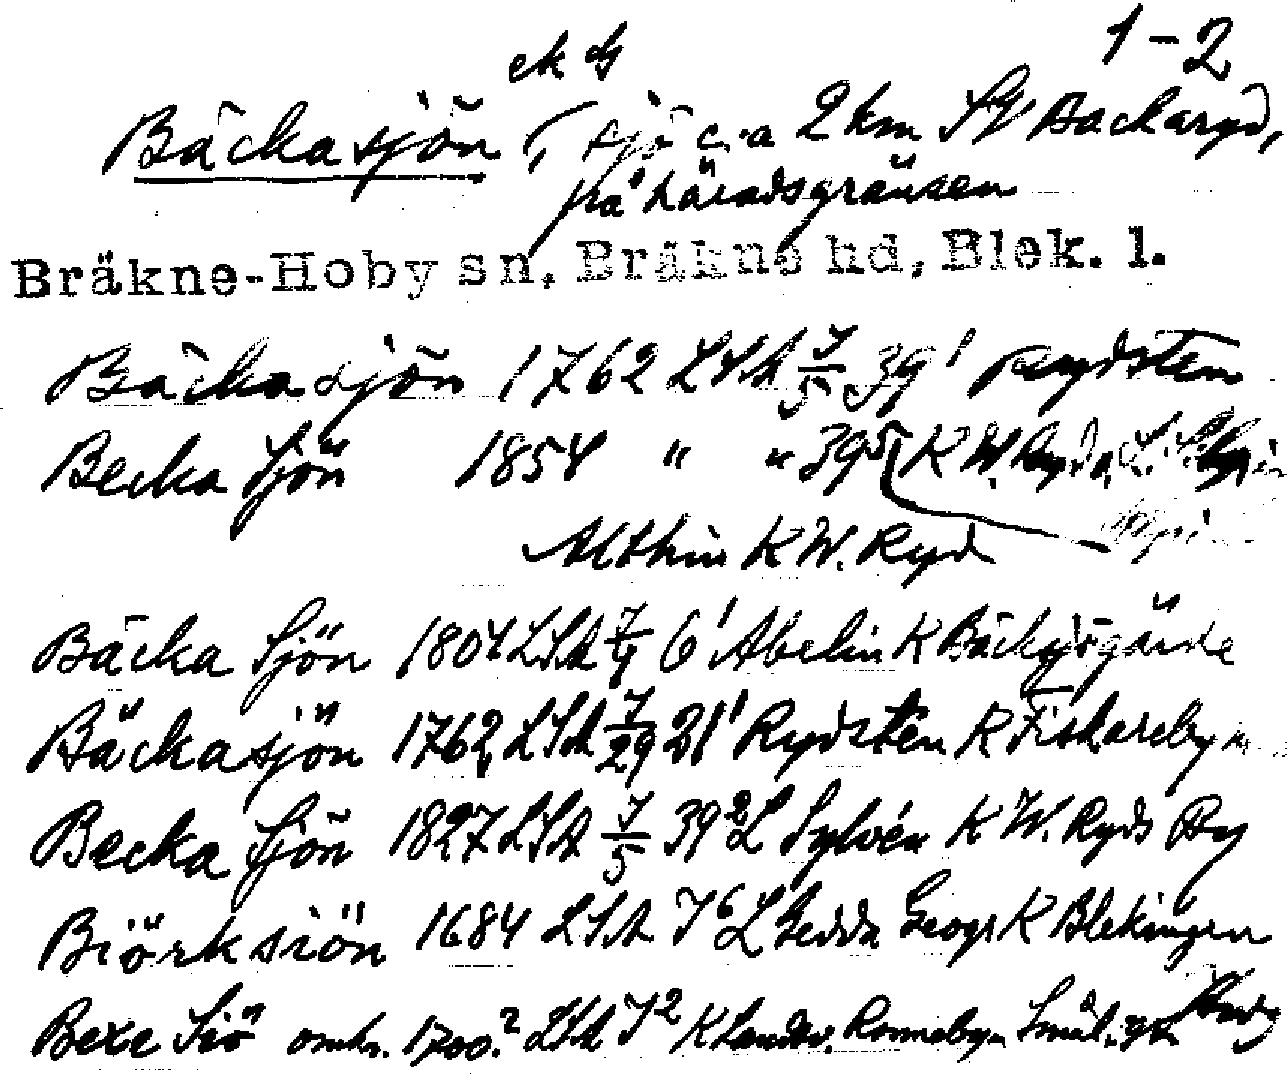 ek G 1-2
Bäckasjön, sjö c:a 2 km SV Backaryd,
på häradsgränsen
Bräkne-Hoby sn, Bräkne hd, Blek. l.
Bäckasjön 1762 LSA 7/5 39¹ Rydsten
Becka Sjön 1854 " " 39⁵ K W. Ryd
Althin K W. Ryd
Bäcka Sjön 1804 LSA 7/4 6¹ Abelin K
Bäckasjön 1762 LSA 7/29 21¹ Rydstén K Fiskareby
Becka Sjön 1827 LSA 7/5 39² L Sylvén K W. Ryds By
Biörksiön 1684 LSA 7⁶ L Gedda Geogr K Blekingen
Bexe Siö omkr. 1700? LSA 7² K Landsv. Ronneby - Smål. gr